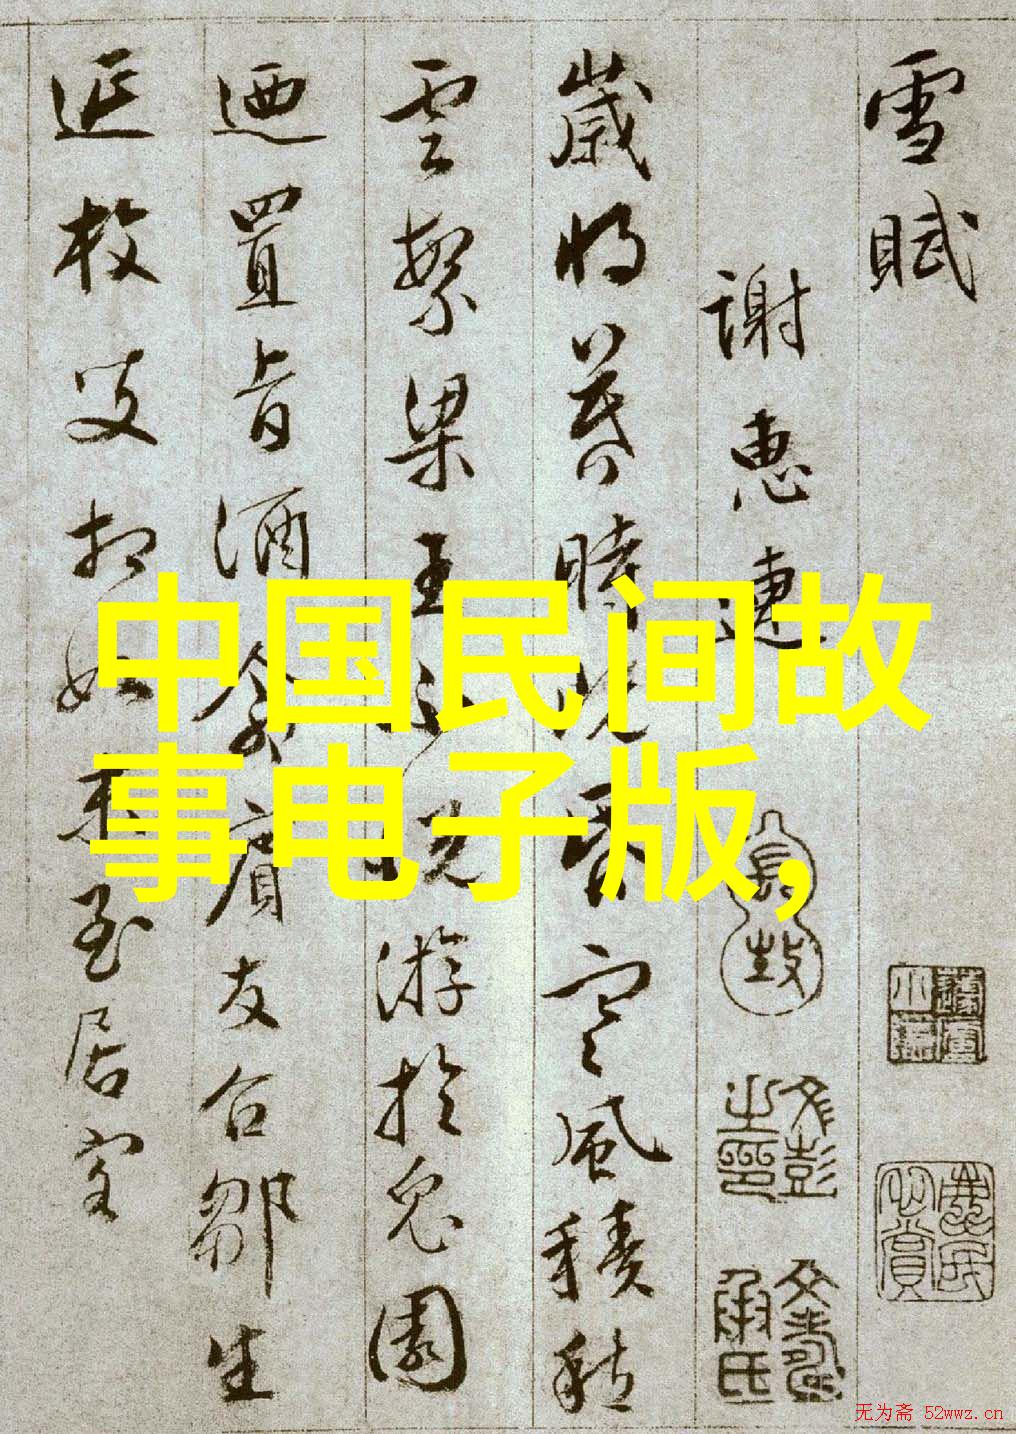 雪賦
謝惠連
歲將暮時既昏寒風積愁
雲繁梁王不悅游於兔園
迺置旨酒命賓友召鄒生
延枚叟相如末至居客
中国民间故
事电子版,
文彭之印
文壽承氏
无为斋 52wwz.cn